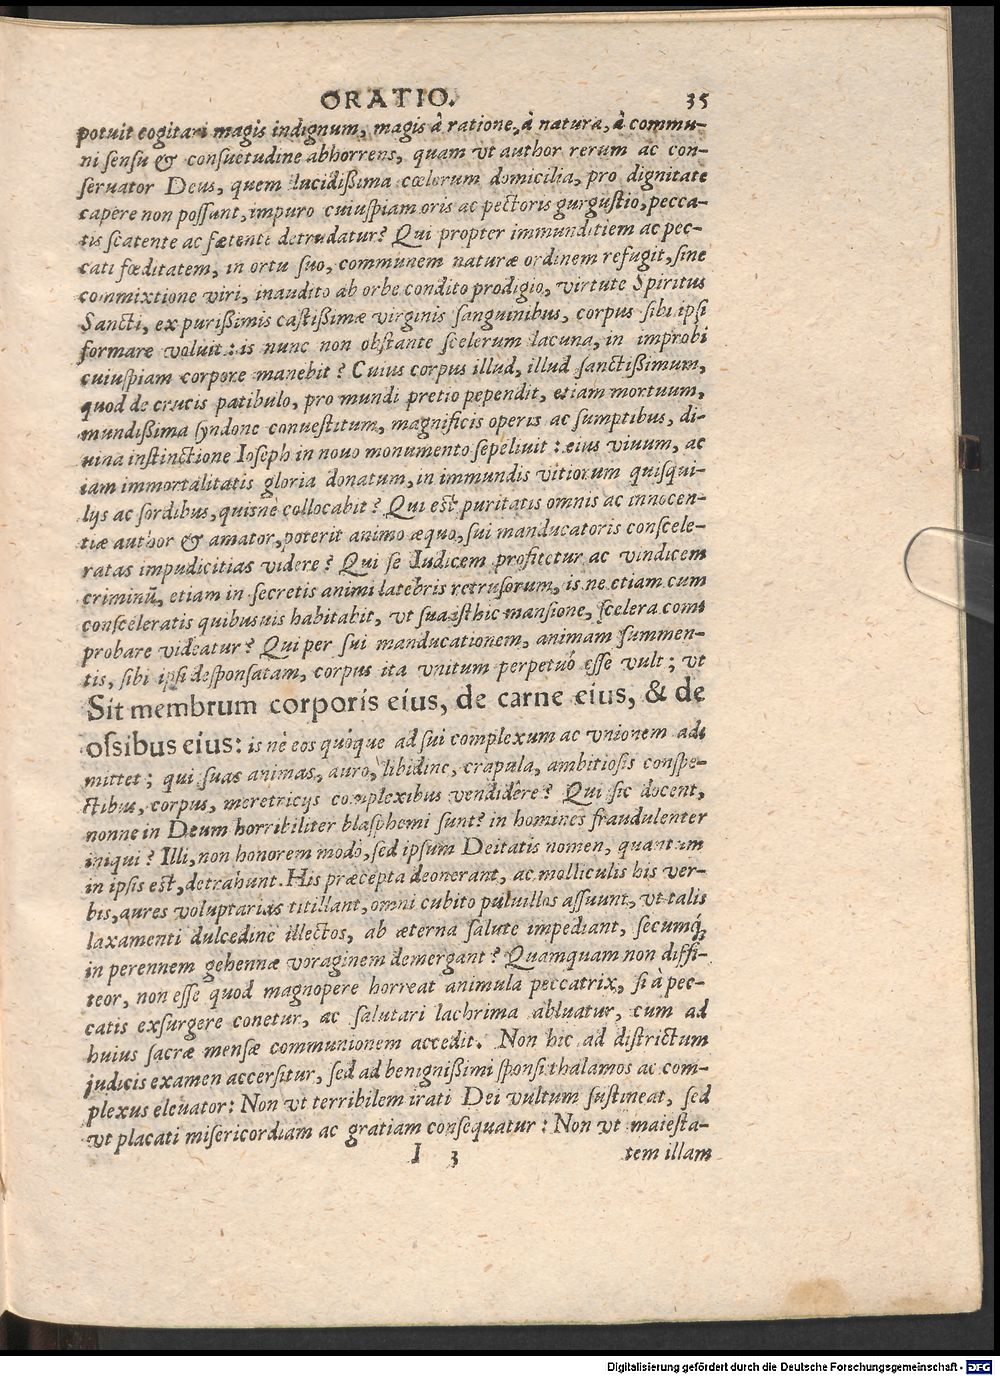 ORATIO. 35
potuit cogitari magis indignum, magis à ratione, à natura, à commu-
ni sensu & consuetudine abhorrens, quam vt author rerum ac con-
seruator Deus, quem lucidißima cœlorum domicilia, pro dignitate
capere non possunt, impuro cuiuspiam oris ac pectoris gurgustio, pecca-
tis scatente ac fœtenti detrudatur? Qui propter immunditiem ac pec-
cati fœditatem, in ortu suo, communem naturæ ordinem refugit, sine
commixtione viri, inaudito ab orbe condito prodigio, virtute Spiritus
Sancti, ex purißimis castißimæ virginis sanguinibus, corpus sibi ipsi
formare voluit: is nunc non obstante scelerum lacuna, in improbi
cuiuspiam corpore manebit? Cuius corpus illud, illud sanctißimum,
quod de crucis patibulo, pro mundi pretio pependit, etiam mortuum,
mundißima syndone conuestitum, magnificis operis ac sumptibus, di-
uina instinctione Ioseph in nouo monumento sepeliuit: eius viuum, ac
iam immortalitatis gloria donatum, in immundis vitiorum quisqui-
lijs ac sordibus, quisne collocabit? Qui est puritatis omnis ac innocen-
tiæ author & amator, poterit animo æquo, sui manducatoris conscele-
ratas impudicitias videre? Qui se Iudicem profitetur ac vindicem
criminū, etiam in secretis animi latebris retrusorum, is ne etiam cum
consceleratis quibusuis habitabit, vt sua isthic mansione, scelera com
probare videatur? Qui per sui manducationem, animam summen-
tis, sibi ipsi desponsatam, corpus ita vnitum perpetuò esse vult; vt
Sit membrum corporis eius, de carne eius, & de
ossibus eius: is nè eos quòque ad sui complexum ac vnionem ad-
mittet; qui suas animas, auro, libidine, crapula, ambitiosis conspe-
ctibus, corpus, meretricijs complexibus vendidêre? Qui sic docent,
nonne in Deum horribiliter blasphemi sunt? in homines fraudulenter
iniqui? Illi, non honorem modò, sed ipsum Deitatis nomen, quantum
in ipsis est, detrahunt. His præcepta deonerant, ac molliculis his ver-
bis, aures voluptarias titillant, omni cubito puluillos assuunt, vt talis
laxamenti dulcedine illectos, ab æterna salute impediant, secumq́;
in perennem gehennæ voraginem demergant? Quamquam non diffi-
teor, non esse quod magnopere horreat animula peccatrix, si à pec-
catis exsurgere conetur, ac salutari lachrima abluatur, cum ad
huius sacræ mensæ communionem accedit. Non hic ad districtum
judicis examen accersitur, sed ad benignißimi sponsi thalamos ac com-
plexus eleuator: Non vt terribilem irati Dei vultum sustineat, sed
vt placati misericordiam ac gratiam consequatur: Non vt maiesta-
I 3 tem illam
Digitalisierung gefördert durch die Deutsche Forschungsgemeinschaft - DFG